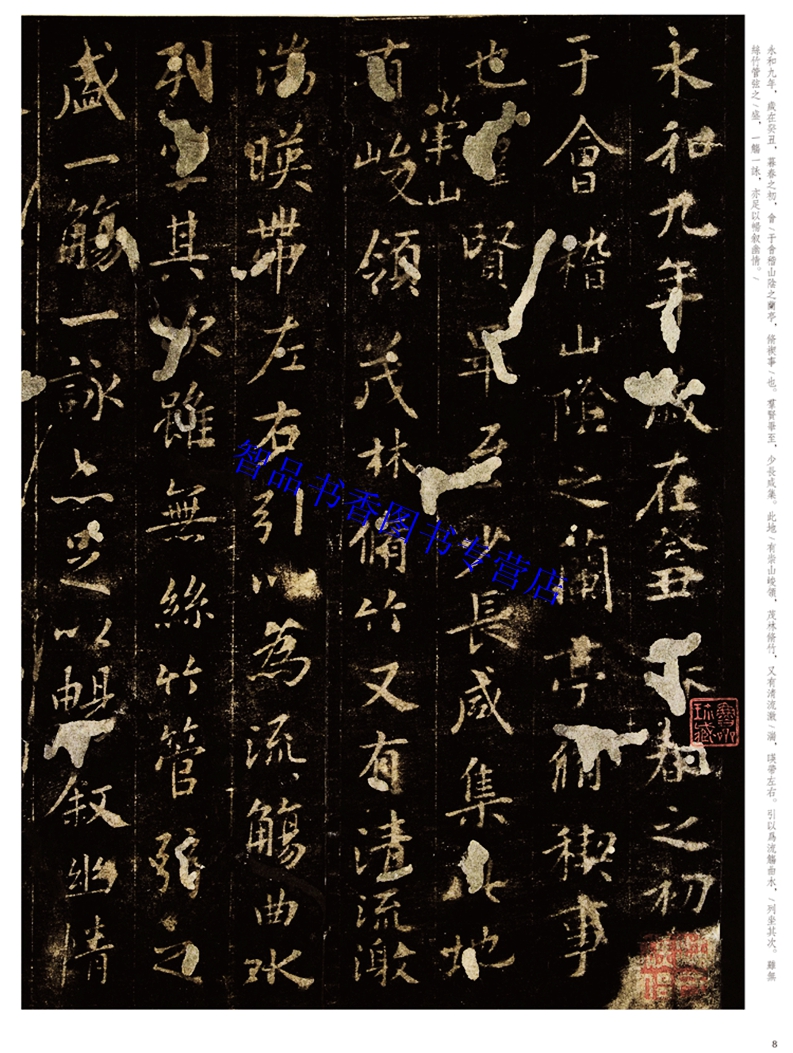 永和九年歲在癸丑暮春之初
會
于會稽山陰之蘭亭脩禊事
也羣賢畢至少長咸集此地
有崇山峻領茂林脩竹又有清流激
湍暎帶左右引以為流觴曲水
列坐其次雖無絲竹管弦之
盛一觴一詠亦足以暢叙幽情
永和九年，歲在癸丑，暮春之初，會/于會稽山陰之蘭亭，脩禊事/也。羣賢畢至，少長咸集。此地/有崇山峻領，茂林脩竹，又有清流激/湍，暎帶左右。引以爲流觴曲水，/列坐其次。雖無
絲竹管弦之/盛，一觴一詠，亦足以暢叙幽情。/
智品书香图书专营店
8